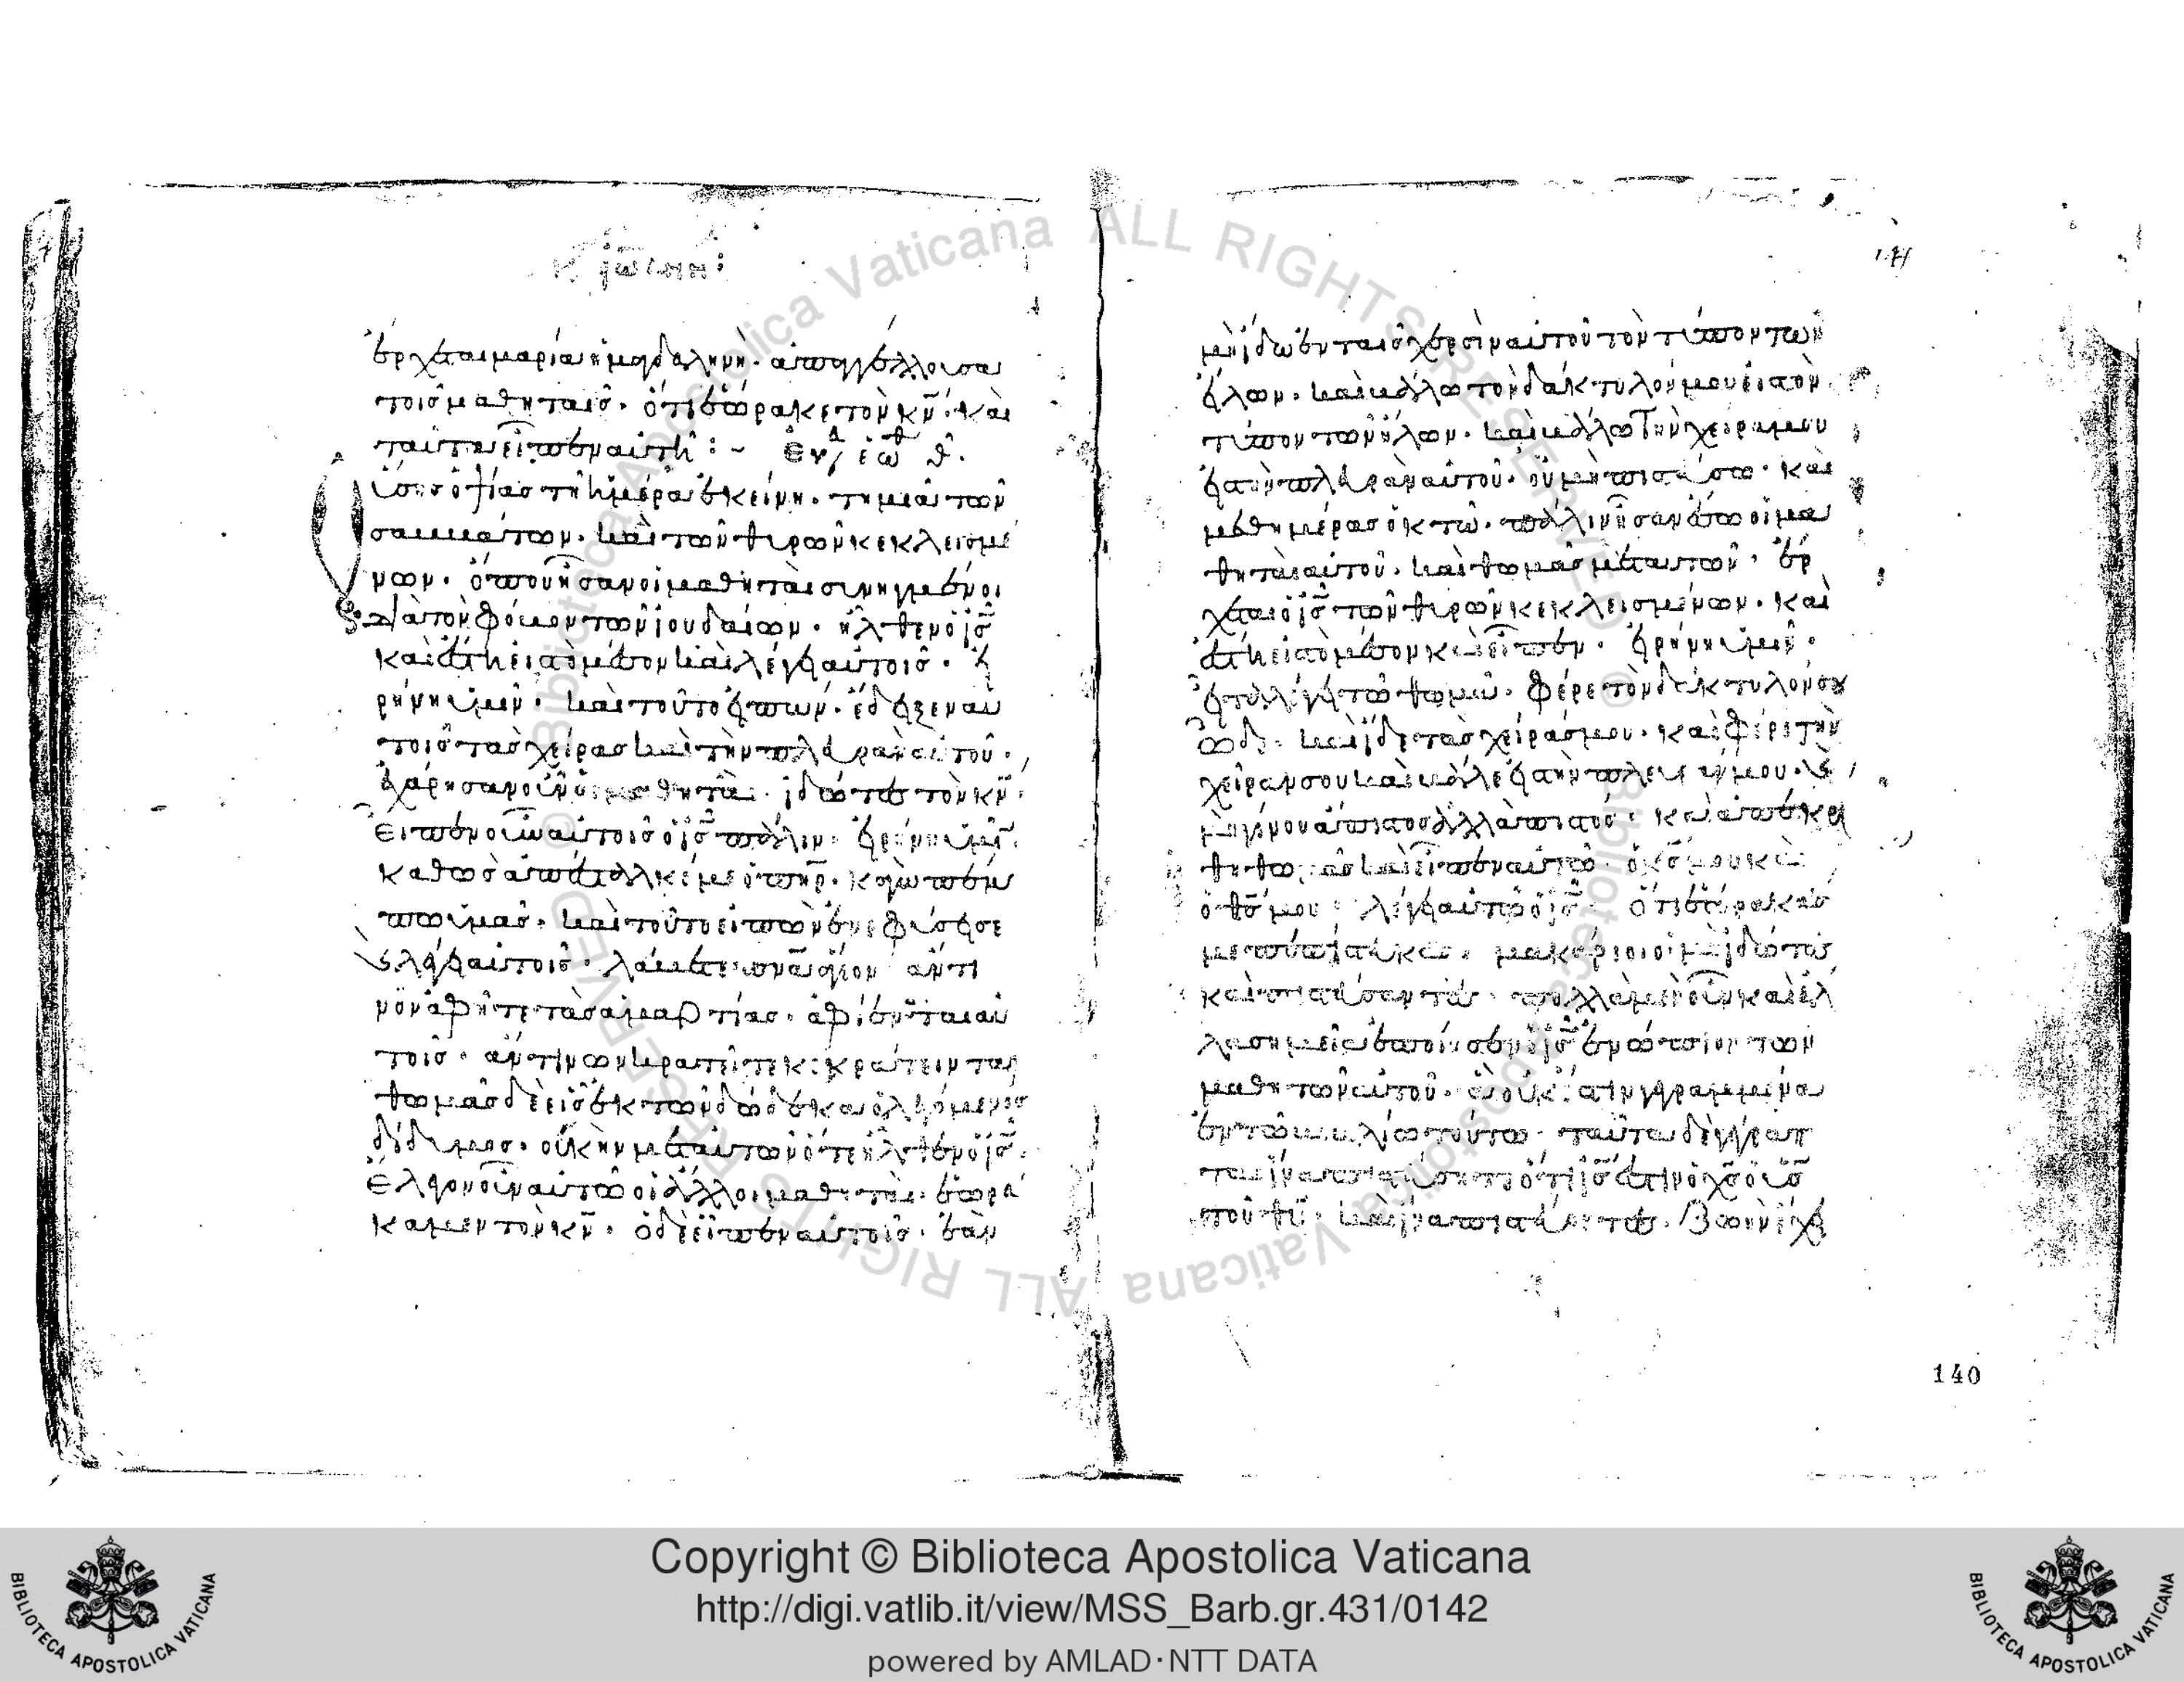 ἔρχεται μαρία ἡ μαγδαληνὴ· ἀπαγγέλλουσα
τοῖς μαθηταῖς· ὅτι ἑώρακε τὸν κν̄· καὶ
ταῦτα εἶπεν αὐτῆ:~
οὔσης ὀψίας τῆ ἡμέρα ἐκείνη· τῆ μιᾶ τῶν
σαββάτων· καὶ τῶν θυρῶν κεκλεισμέ
νων· ὅπου ἦσαν οἱ μαθηταὶ συνηγμένοι
διὰ τὸν φόβον τῶν ἰουδαίων· ἦλθεν ὁ ις̄
καὶ ἔστη εἰς τὸ μέσον καὶ λέγει αὐτοῖς· εἰ
ρήνη ὑμῖν· καὶ τοῦτο εἰπὼν· ἔδειξεν αὐ
τοῖς τὰς χεῖρας καὶ τὴν πλευρὰν αὐτοῦ·
ἐχάρησαν οὖν οἱ μαθηταὶ· ἰδόντες τὸν κν̄·
εἶπεν οὖν αὐτοῖς ὁ ις̄ πάλιν· εἰρήνη ὑμῖν·
καθὼς ἀπέσταλκέ με ὁ πηρ̄· κἀγὼ πέμ
πω ὑμᾶς· καὶ τοῦτο εἰπὼν ἐνεφύσησε
καὶ λέγει αὐτοῖς· λάβετε πνᾱ ἅγιον ἄν τι
νων ἀφῆτε τὰς ἁμαρτίας· ἀφίενται αὐ
τοῖς· ἄν τινων κρατῆτε κεκράτηνται
θωμᾶς δὲ εἷς ἐκ τῶν δώδεκα ὁ λεγόμενος
δίδυμος· οὐκ ἦν μετ αὐτῶν ὅτε ἦλθεν ὁ ις̄·
ἔλεγον οὖν αὐτῶ οἱ ἄλλοι μαθηταὶ· ἑωρά
καμεν τὸν κν̄· ὁ δὲ εἶπεν αὐτοῖς· ἐὰν
μὴ ἴδω ἐν ταῖς χερσὶν αὐτοῦ τὸν τύπον τῶν
ἥλων· καὶ βάλω τὸν δάκτυλόν μου εἰς τὸν
τύπον τῶν ἥλων· καὶ βάλω τὴν χεῖρα μου
εἰς τὴν πλευρὰν αὐτοῦ· οὐ μὴ πιστεύσω· καὶ
μεθ ημέρας ὀκτὼ· πάλιν ἦσαν ἔσω οἱ μα
θηταὶ αὐτοῦ· καὶ θωμᾶς μετ αυτῶν· ἔρ
χεται ὁ ις̄ τῶν θυρῶν κεκλεισμένων· καὶ
ἔστη εἰς τὸ μέσον καὶ εἶπεν· εἰρήνη ὑμῖν·
εἶτα λέγει τῶ θωμᾶ· φέρε τὸν δάκτυλόν σου
ὧδε· καὶ ἴδε τὰς χεῖράς μου· καὶ φέρε τὴν
χεῖρα σου καὶ βάλε εἰς τὴν πλευράν μου· καὶ
μὴ γίνου ἄπιστος ἀλλὰ πιστός· καὶ ἀπεκρί
θη θωμᾶς καὶ εἶπεν αὐτῶ· ὁ κς̄ μου καὶ
ὁ θς̄ μου· λέγει αὐτῶ ὁ ις̄· ὅτι ἑώρακάς
με πεπίστευκας· μακάριοι οἱ μὴ ἰδόντες
καὶ πιστεύσαντες· πολλὰ μὲν οὖν καὶ ἄλ
λα σημεῖα ἐποίησεν ὁ ις̄ ἐνώπιον τῶν
μαθητῶν αὐτοῦ· ἃ οὐκ ἔστιν γεγραμμένα
ἐν τῶ βιβλίω τούτω· ταῦτα δὲ γέγραπ
ται ἵνα πιστεύσητε ὅτι ις̄ ἐστιν ὁ χς̄ ὁ υς̄
τοῦ θῡ· καὶ ἵνα πιστεύοντες· ζωὴν ἔχη
140
Copyright © Biblioteca Apostolica Vaticana
http://digi.vatlib.it/view/MSS_Barb.gr.431/0142
powered by AMLAD·NTT DATA